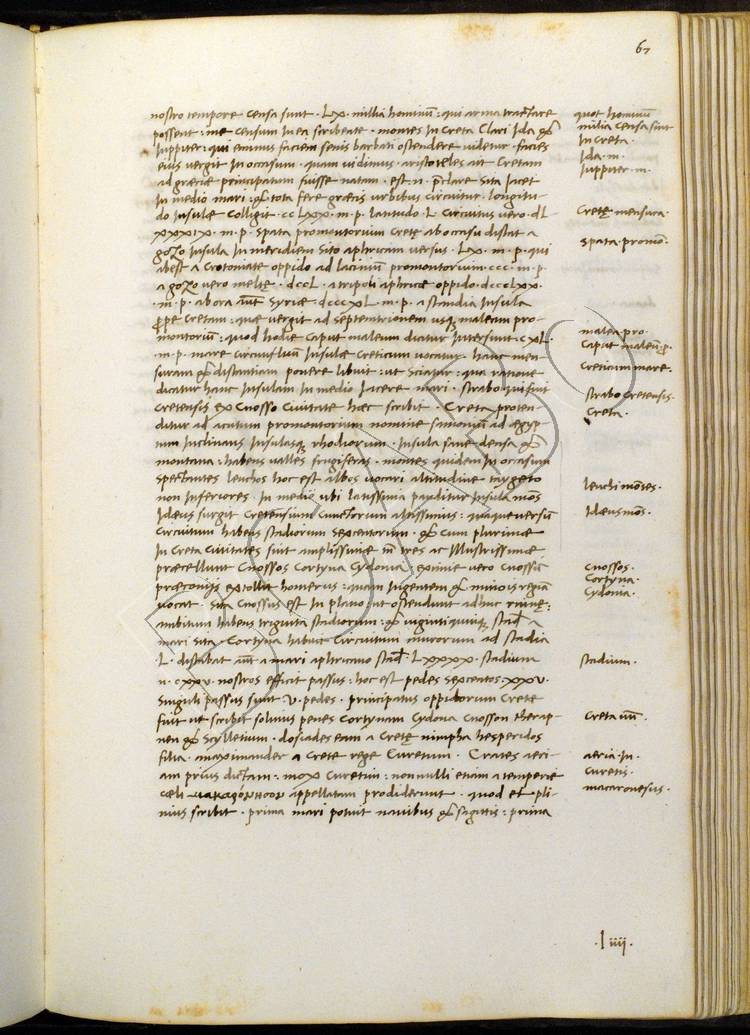 67
nostro tempore censa sunt · LX · millia hominũ : qui arma tractare
possent : me censum in ea scribente · montes in Creta Clari Ida &
Iuppiter : qui eminus faciem senis barbati ostendere videtur · facies
eius vergit in occasum · quam vidimus · aristoteles ait Cretam
ad græciæ principatum fuisse natam · est · n · p̃clare sita Iacet
In medio mari : & tota fere græcis urbibus circuitur · longitu-
do insulæ colligit · cc LXX · m · p · latitudo · L · Circuitus vero · dL
XXXIX · m · p · Spata promontorium Cretę ab occasu distat a
gozo insula In meridiem sito aphricam versus · LX · m · p · qui
abest a Crotoniate oppido ad lacinium promontorium · ccc · m · p ·
a gozo vero melte · dccL · a tripoli aphricæ oppido · dcccLXX ·
· m · p · ab ora aũt Syriæ dcccXL · m · p · a standia Insula
prope Cretam : quæ vergit ad septemtrionem usq; maleum pro-
montoriũ : quod hodie Caput maleum dicitur Intersunt · cXL ·
· m · p · mare circunfluũ Insulæ creticum vocatur · hanc men-
suram & distantiam ponere libuit : ut sciatur : qua ratione
dicatur hanc Insulam In medio Iacere mari · strabo qui fuit
cretensis ex Cnosso Civitate hæc scribit · Creta proten-
ditur ad acutum promontorium nomine samonium ad ægyp-
tum Inclinans Insulasq; rhodiorum · Insula sane densa &
montana : habens valles frugiferas · montes quidem in occasum
spectantes leuchos hoc est albos vocari altitudine taygeto
non Inferiores · In medio ubi latissima panditur Insula mõs
Idæus surgit Cretensium cunctorum altissimus : quaqueversũ
Circuitum habens stadiorum sexcentorum · & cum plurimæ
In Creta Civitates sint amplissimæ tñ tres ac Illustrissimæ
præcellunt Cnossos Cortyna Cydonia · eximie vero Cnossũ
præconijs extollit homerus : quam Ingentem & minois regiã
vocat · Sita Cnossus est In plano : ut ostendunt adhuc ruinę :
ambitum habens triginta stadiorum : & viginti quinq; stad̃ a
mari sita · Cortyna habuit Circuitum murorum ad stadia
L · distabat aũt a mari aphricano stad̃ · LXXXX · stadium
n · cXXV · nostros efficit passus : hoc est pedes sexcentos · XXV ·
Singuli passus sunt · V · pedes · principatus oppidorum Crete
fuit ut scribit solinus penes Cortynam Cydona Cnosson therap-
nen & Scylletium · dosiades eam a Cretę nimpha hesperidos
filia · anaximander a Crete rege Curetum · Crates aeri-
am prius dictam : mox Curetin : nonnulli etiam a temperie
cæli μακαρόννησον appellatam prodiderunt · quod et pli-
nius scribit · prima mari potuit navibus & sagittis : prima
quot hominũ
milia censa sint
in Creta ·
Ida · m ·
Iuppiter · m ·
Cretę mensura ·
Spata · promõ ·
malea · pro ·
Caput maleũ · p ·
Creticum mare ·
strabo Cretensis ·
Creta ·
leuchi mõtes ·
Idæus mõs ·
Cnossos ·
Cortyna ·
Cydonia ·
stadium ·
aeria · in ·
Curetis ·
macaronesus ·
· I iiij ·